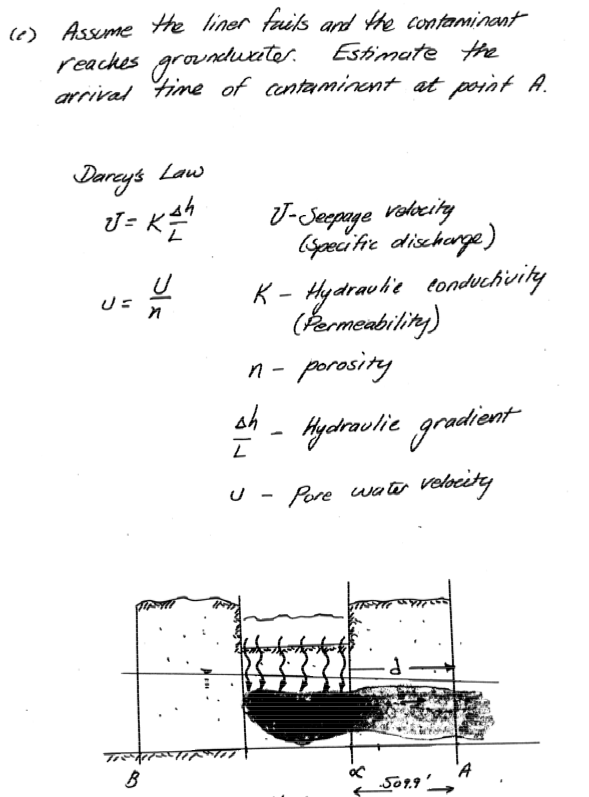 (e) Assume the liner fails and the contaminant
reaches groundwater. Estimate the
arrival time of contaminant at point A.
Darcy's Law
U = K Δh/L
U - Seepage velocity
(specific discharge)
u = U/n
K - Hydraulic conductivity
(Permeability)
n - porosity
Δh/L - Hydraulic gradient
u - Pore water velocity
d
B
α
A
509.9'